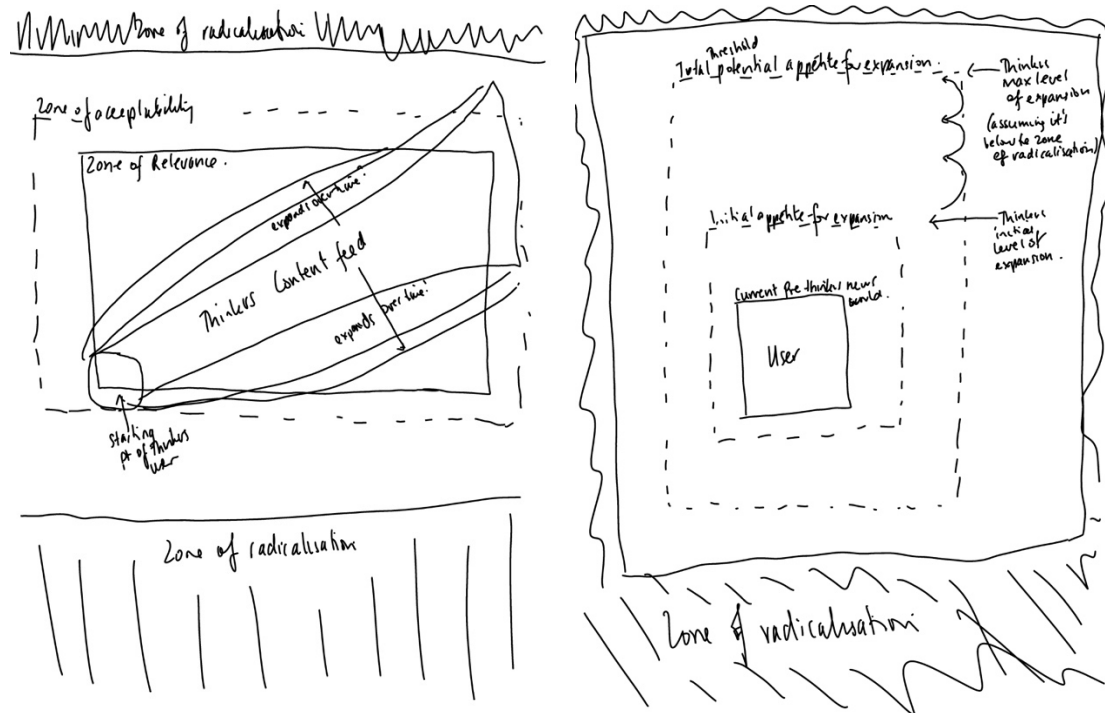 Zone of radicalisation
Zone of acceptability
Zone of Relevance.
expands over time!
Thinkers Content feed
expands over time!
starting
pt of Thinkers
user
Zone of radicalisation
Threshold
Total potential appetite for expansion.
Thinkers
max level
of expansion
(assuming it's
below the zone
of radicalisation)
Initial appetite for expansion
Thinkers
initial
level of
expansion.
Current Pre thinkers news
world.
User
Zone of radicalisation